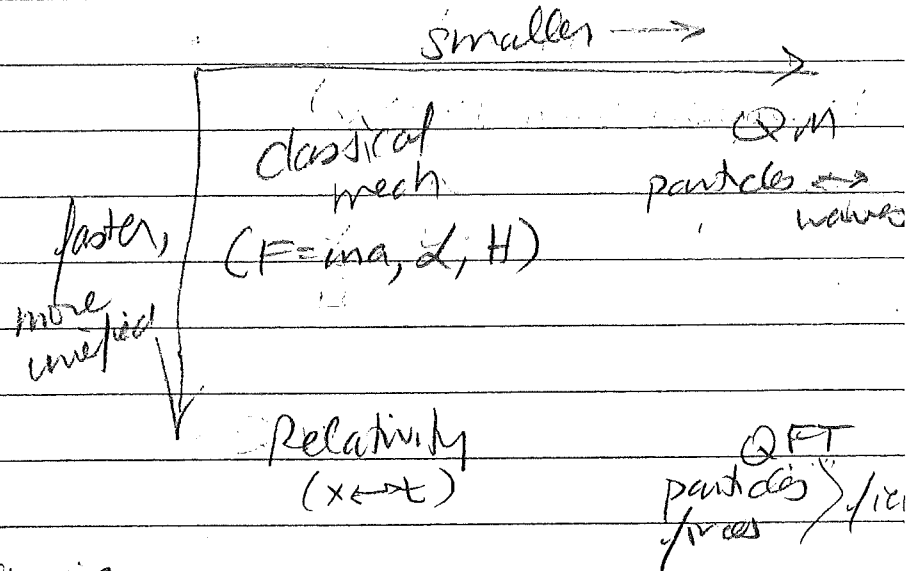 smaller →
classical
mech
(F=ma, L, H)
QM
particles ↔
waves
faster,
more
unified
Relativity
(x↔t)
QFT
particles
forces